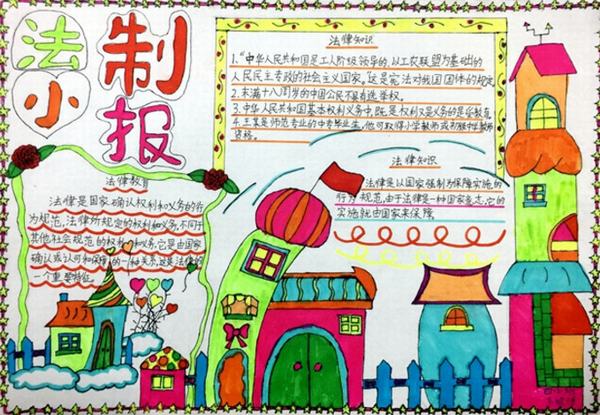 法制
小报
法律知识
1."中华人民共和国是工人阶级领导的,以工农联盟为基础的
人民民主专政的社会主义国家,这是宪法对我国国体的规定
2.未满十八周岁的中国公民不具有选举权.
3.中华人民共和国基本权利义务中,既是权利又是义务的是受教育
4.王某是师范专业的中专毕业生,他可取得小学教师或初级中学教师
资格.
法律教育
法律是国家确认权利和义务的行
为规范,法律所规定的权利和义务,不同于
其他社会规范的权利和义务,它是由国家
确认或认可和保障的一种关系,这是法律的
一个重要特征.
法律知识
法律是以国家强制为保障实施的
行为规范,由于法律是一种国家意志,它的
实施就由国家来保障